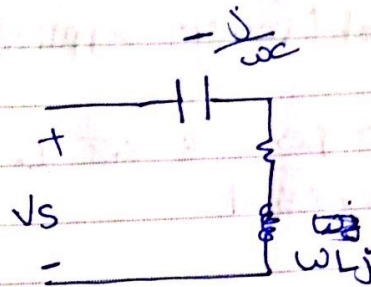 -j/ωc
+
Vs
-
ωLj